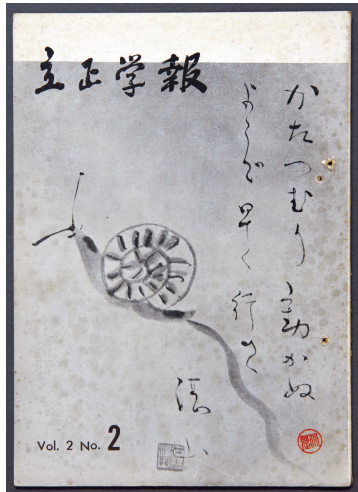 立正学報
かたつむり動かぬ
ようで早く行き
湛山
Vol. 2 No. 2